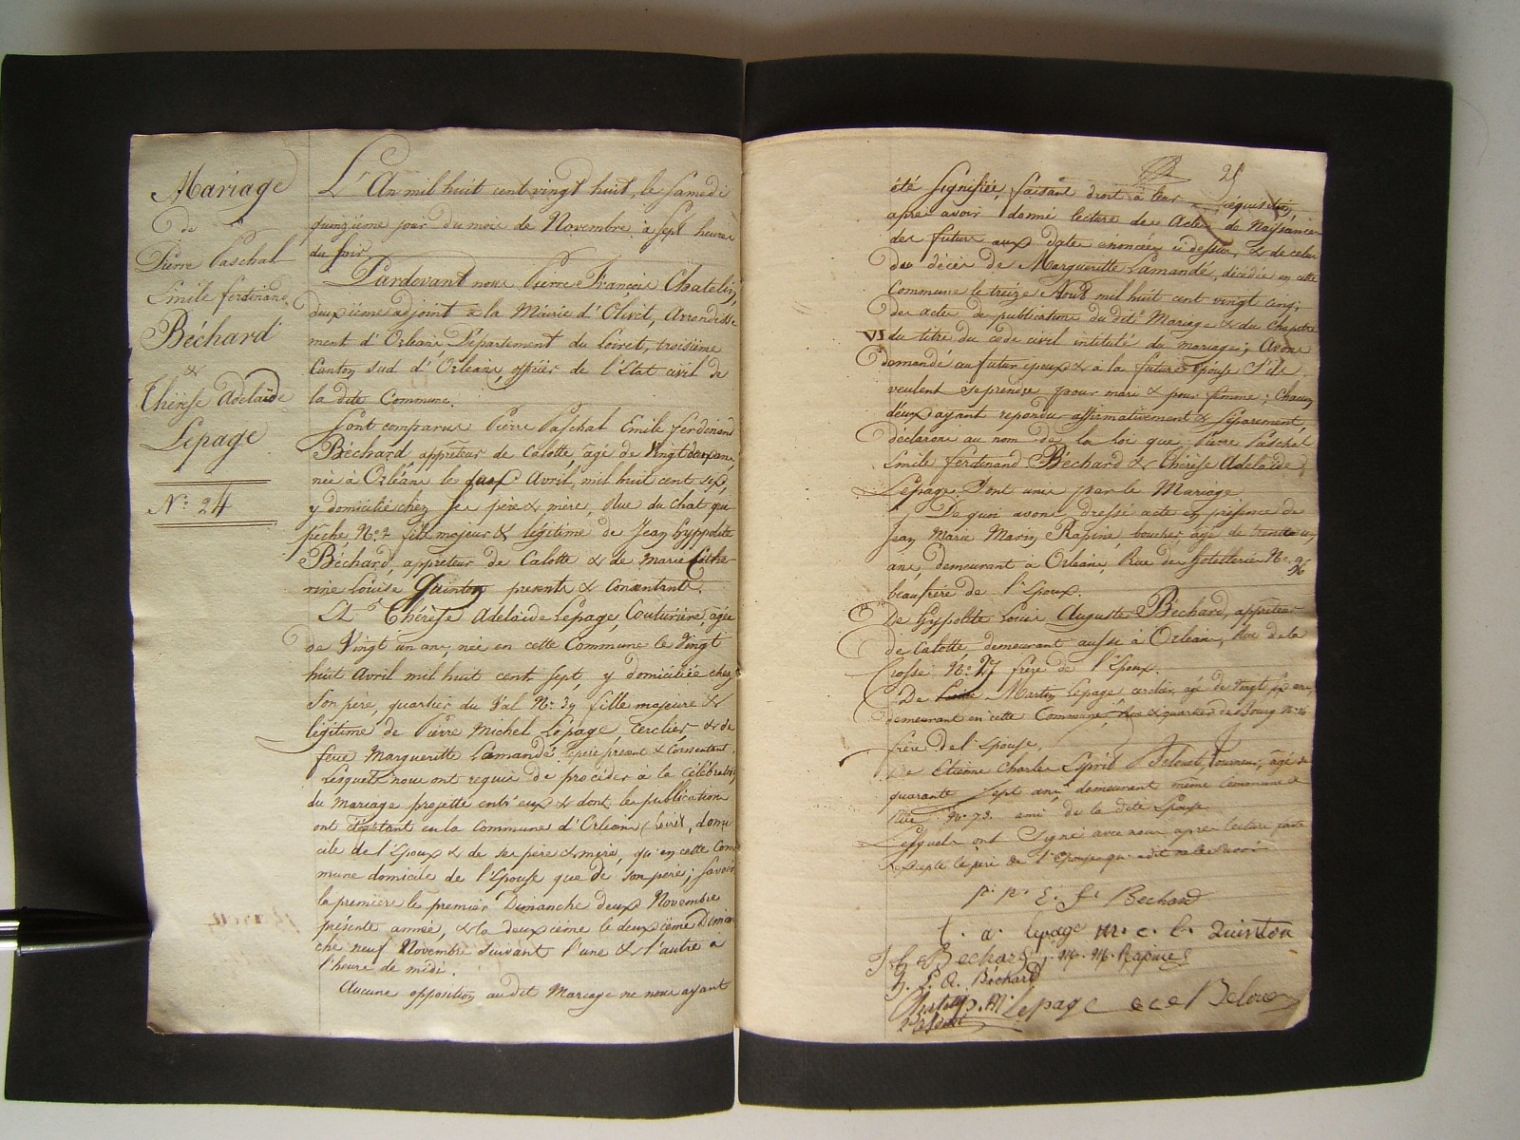 Mariage
de
Pierre Paschal
Emile ferdinand
Béchard
&
Thérèse Adelaïde
Lepage
N.° 24
L'An mil huit cent vingt huit, le Samedi
quinzième jour du mois de Novembre à Sept heures
du Soir
Pardevant nous Pierre François Chatelin,
deuxième adjoint à la Mairie d'Olivet, Arrondisse
ment d'Orléans Département du Loiret, troisième
Canton sud d'Orléans, officier de l'Etat civil de
la dite Commune.
Sont comparus Pierre Paschal Emile ferdinand
Béchard appréteur de Calotte, âgé de Vingt deux ans,
née à Orléans le Avril mil huit cent six,
y domicilié chez se père & mère, Rue du Chat qui
pèche, N.° 2 fils majeur & légitime de Jean hyppolite
Béchard, appréteur de Calotte & de Marie Cathe
rine Louise Quinton presents & Consentants.
Et Thérèse Adelaïde Lepage, Couturière, agée
de Vingt un ans, née en cette Commune le Vingt
huit Avril mil huit cent sept, y domiciliée chez
Son père, quartier du Val N.° 39 fille majeure &
légitime de Pierre Michel Lepage, Cerclier, & de
feue Margueritte Lamandé. père présent & Consentant.
Lesquels nous ont requis de procéder à la Célébration
du Mariage projetté entr'eux & dont les publications
ont été faites en la Commune d'Orléans, Loiret, domi
cile de l'Epoux & de ses père & mère, qu'en cette Com
mune domicile de l'Epouse que de Son père; Savoir
la première le premier Dimanche deux Novembre
présente année, & la deuxième le deuxième Diman
che neuf Novembre suivant l'une & l'autre à
l'heure de midi.
Aucune opposition audit Mariage ne nous ayant
été Signifiée, faisant droit à leur réquisition,
après avoir donné lecture des Actes de Naissances
des futurs aux dates énoncées ci dessus, & de celui
du décès de Margueritte Lamandé, décédée en cette
Commune le treize Août mil huit cent vingt cinq;
des actes de publications du dit Mariage & du Chapitre
VI du titre du code civil intitulé du mariage; Avons
demandé au futur époux & à la future Epouse S'ils
veulent se prendre pour mari & pour femme: Chacun
d'eux ayant répondu affirmativement & séparement,
déclarons au nom de la Loi que Pierre Paschal
Emile ferdinand Béchard & Thérèse Adelaïde
Lepage Sont unis par le Mariage.
De quoi avons dressé acte en présence de
Jean Marie Marin Rapine, boucher, âgé de trente
ans, demeurant à Orléans, Rue des hotelleries N.° 96
beaufrère de l'Epoux.
De hyppolite Louis Auguste Béchard, appréteur
de Calotte, demeurant aussi à Orléans, Rue de la
Crosse N.° 27 frère de l'Epoux.
De Martin Lepage, cerclier, agé de Vingt six ans,
demeurant en cette Commune, quartier du Bourg N.°
frère de l'Epouse.
De Etienne Charles Esprit Belouet, Couvreur, âgé de
quarante Sept ans, demeurant même Commune
N.° 73. ami de la dite Epouse
Lesquels ont Signé avec nous après lecture faite
excepté le père de l'Epouse qui a dit ne le Savoir
p. p. E. f. Bechard
t. a. lepage m. c. l. Quinton
J. h. Bechard, J. M. M. Rapine
h. L. A. Béchard
Chatelin M. Lepage e c e Belouet
adjoint